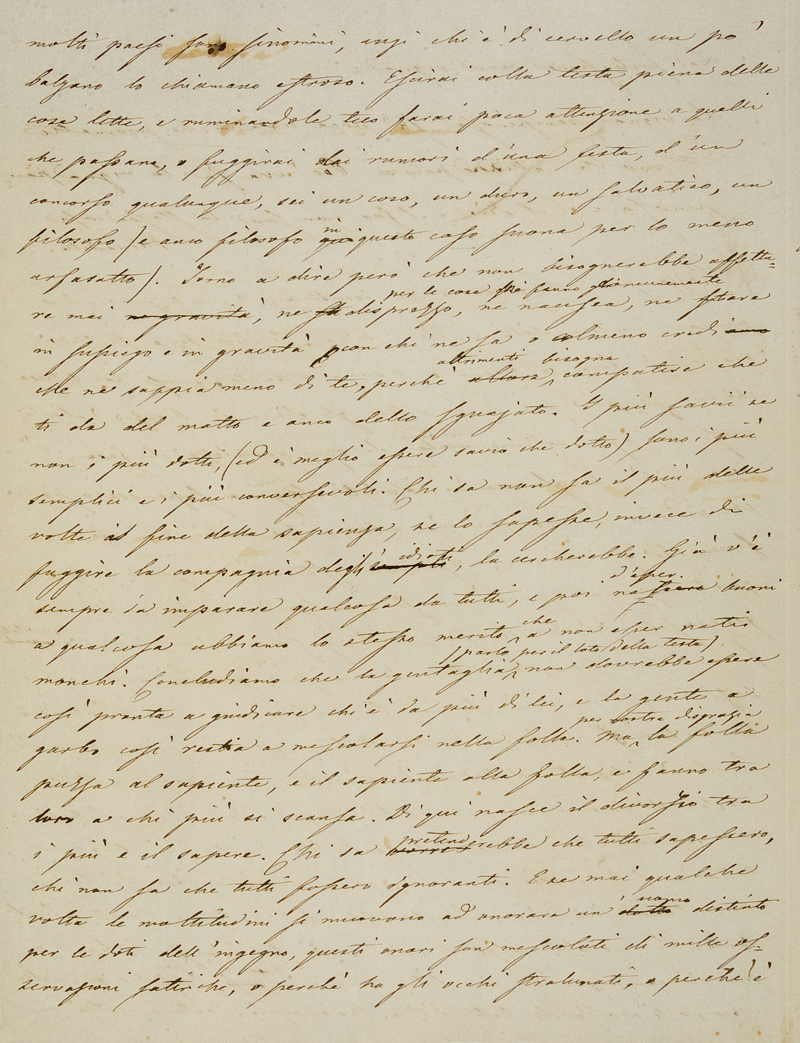 molti paesi sono sinonimi, anzi chi è di cervello un po'
balzano lo chiamano estroso. Escirai colla testa piena delle
cose lette, e ruminandole teco farai poca attenzione a quelli
che passano, o fuggirai dai rumori d'una festa, d'un
concorso qualunque, sei un coso, un duro, un salvatico, un
filosofo (e anco filosofo in questo caso suona per lo meno
arfasatto). Torno a dire però che non bisognerebbe affetta=
per le cose che fanno
re mai ne gravità, ne disprezzo, ne nausea, ne stare
in sussiego e in gravità con chi ne sa o almeno credi
altrimenti bisogna
che ne sappia meno di te, perchè allora compatire che
ti da del matto e anco dello sguajato. I più savii se
non i più dotti, (ed è meglio essere savio che dotto) sono i più
semplici e i più conversevoli. Chi sa non sa il più delle
volte il fine della sapienza, se lo sapesse, invece di
idioti
fuggire la compagnia degli, la cercherebbe. Già v'è
d'esser
sempre da imparare qualcosa da tutti, e poi nascere buoni
che
a qualcosa abbiamo lo stesso merito a non esser natis
(parlo per il lato della testa)
monchi. Concludiamo che la gentaglia non dovrebbe essere
così pronta a giudicare chi è da più di lei, e la gente a
per nostra disgrazia
garbo così restia a mescolarsi nella folla. Ma la folla
puzza al sapiente, e il sapiente alla folla, e fanno tra
loro a chi più si scansa. Di qui nasce il divorzio tra
i più e il sapere. Chi sa pretenderebbe che tutti sapessero,
chi non sa che tutti fossero ignoranti. E se mai qualche
uomo
volta le moltitudini si muovono ad onorare un' distinto
per le doti dell'ingegno, questi onori son mescolati di mille os=
servazioni satiriche, o perchè ha gli occhi stralunati, o perchè è